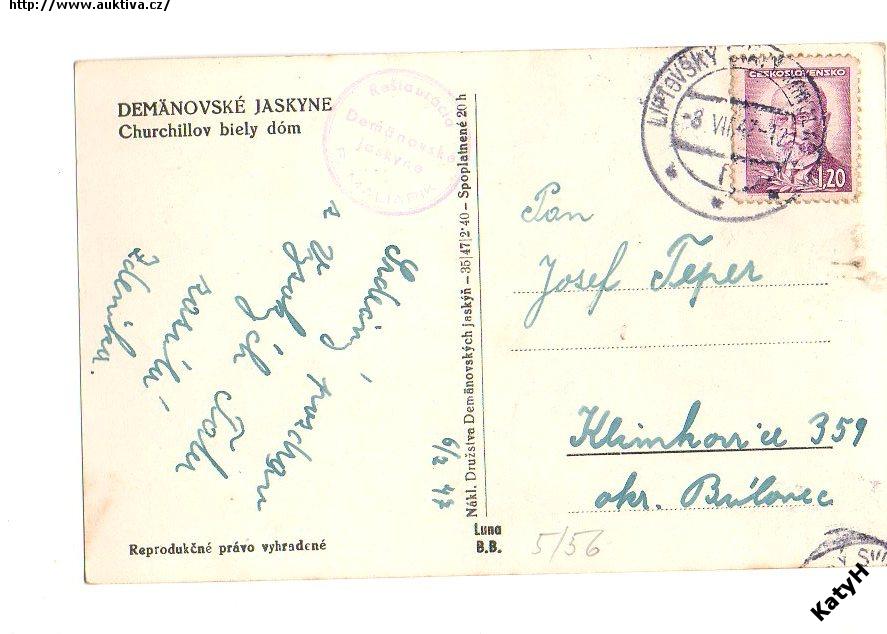 http://www.auktiva.cz/
DEMÄNOVSKÉ JASKYNE
Churchillov biely dóm
Reštaurácia
Demänovské
jaskyne
LIPTOVSKÝ
-8.VII.47-
ČESKOSLOVENSKO
1,20
Srdečný pozdrav
z Vysokých Tater
posílá
Zdenka.
6/2 47
Nákl. Družstva Demänovských jaskýň – 35|47|2·40 – Spoplatnené 20 h
Pan
Josef Teper
Klimkovice 359
okr. Bílovec
Reprodukčné právo vyhradené
Luna
B.B.
5/56
KatyH